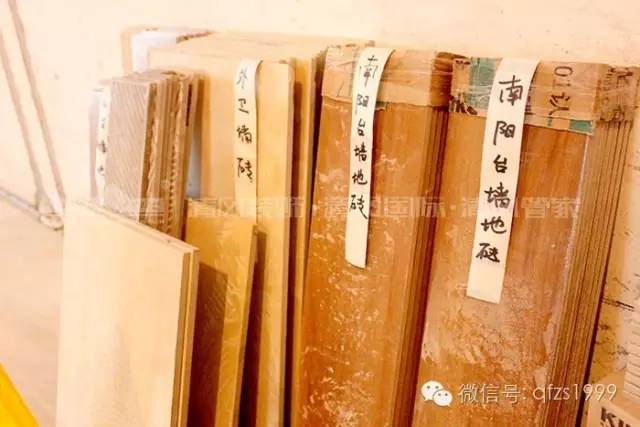 外卫墙砖
南阳台墙地砖
南阳台墙地砖
01认
清风装饰·清风国际·清风管家
微信号: qfzs1999